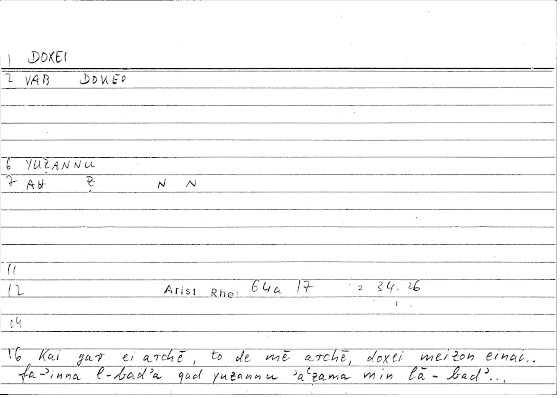 1 DOKEI
2 VAB DOKEO
6 YUẒANNU
7 AH Ẓ N N
11
12 Arist Rhe: 64a 17 = 34.26
14
16 Kai gar ei archē, to de mē archē, dokei meizon einai..
fa-ʾinna l-badʾa qad yuẓannu ʾaʿẓama min lā-badʾ...